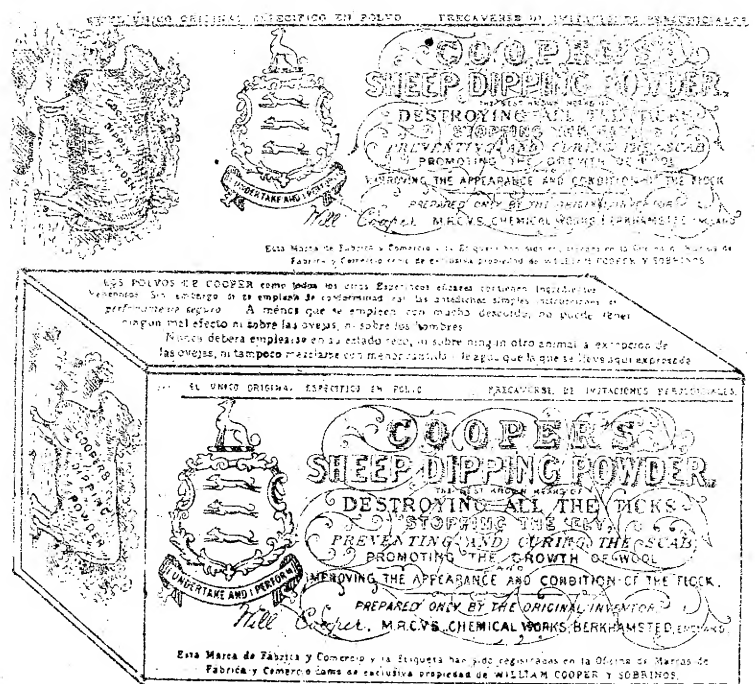 EL ÚNICO ORIGINAL ESPECIFICO EN POLVO PRECAVERSE DE IMITACIONES PERJUDICIALES
COOPER'S
SHEEP DIPPING POWDER,
THE BEST KNOWN MEANS OF
DESTROYING ALL THE TICKS
STOPPING THE FLY,
PREVENTING AND CURING THE SCAB
PROMOTING THE GROWTH OF WOOL
IMPROVING THE APPEARANCE AND CONDITION OF THE FLOCK
PREPARED ONLY BY THE ORIGINAL INVENTOR
Will Cooper, M.R.C.V.S. CHEMICAL WORKS BERKHAMSTED, ENGLAND
COOPERS
DIPPING
POWDER
UNDERTAKE AND I PERFORM
Esta Marca de Fábrica y Comercio y la Etiqueta han sido registradas en la Oficina de Marcas de
Fabrica y Comercio como de exclusiva propiedad de WILLIAM COOPER Y SOBRINOS
LOS POLVOS DE COOPER como todos los otros Especificos eficaces contienen Ingredientes
Venenosos. Sin embargo si se emplean de conformidad con las antedichas simples instrucciones es
perfectamente seguro. A ménos que se empleen con mucho descuido, no puede tener
ningun mal efecto ni sobre las ovejas, ni sobre los hombres
Nunca deberá emplearse en su estado seco, ni sobre ningun otro animal a excepcion de
las ovejas, ni tampoco mezclarse con menor cantidad de agua que la que se lleva aqui expresada
EL UNICO ORIGINAL ESPECIFICO EN POLVO PRECAVERSE DE IMITACIONES PERJUDICIALES.
COOPER'S
SHEEP DIPPING POWDER,
THE BEST KNOWN MEANS OF
DESTROYING ALL THE TICKS
STOPPING THE FLY,
PREVENTING AND CURING THE SCAB,
PROMOTING THE GROWTH OF WOOL
IMPROVING THE APPEARANCE AND CONDITION OF THE FLOCK.
PREPARED ONLY BY THE ORIGINAL INVENTOR
Will Cooper, M.R.C.V.S., CHEMICAL WORKS, BERKHAMSTED, ENGLAND
COOPERS
DIPPING
POWDER
UNDERTAKE AND I PERFORM
Esta Marca de Fábrica y Comercio y la Etiqueta han sido registradas en la Oficina de Marcas de
Fabrica y Comercio como de exclusiva propiedad de WILLIAM COOPER Y SOBRINOS.